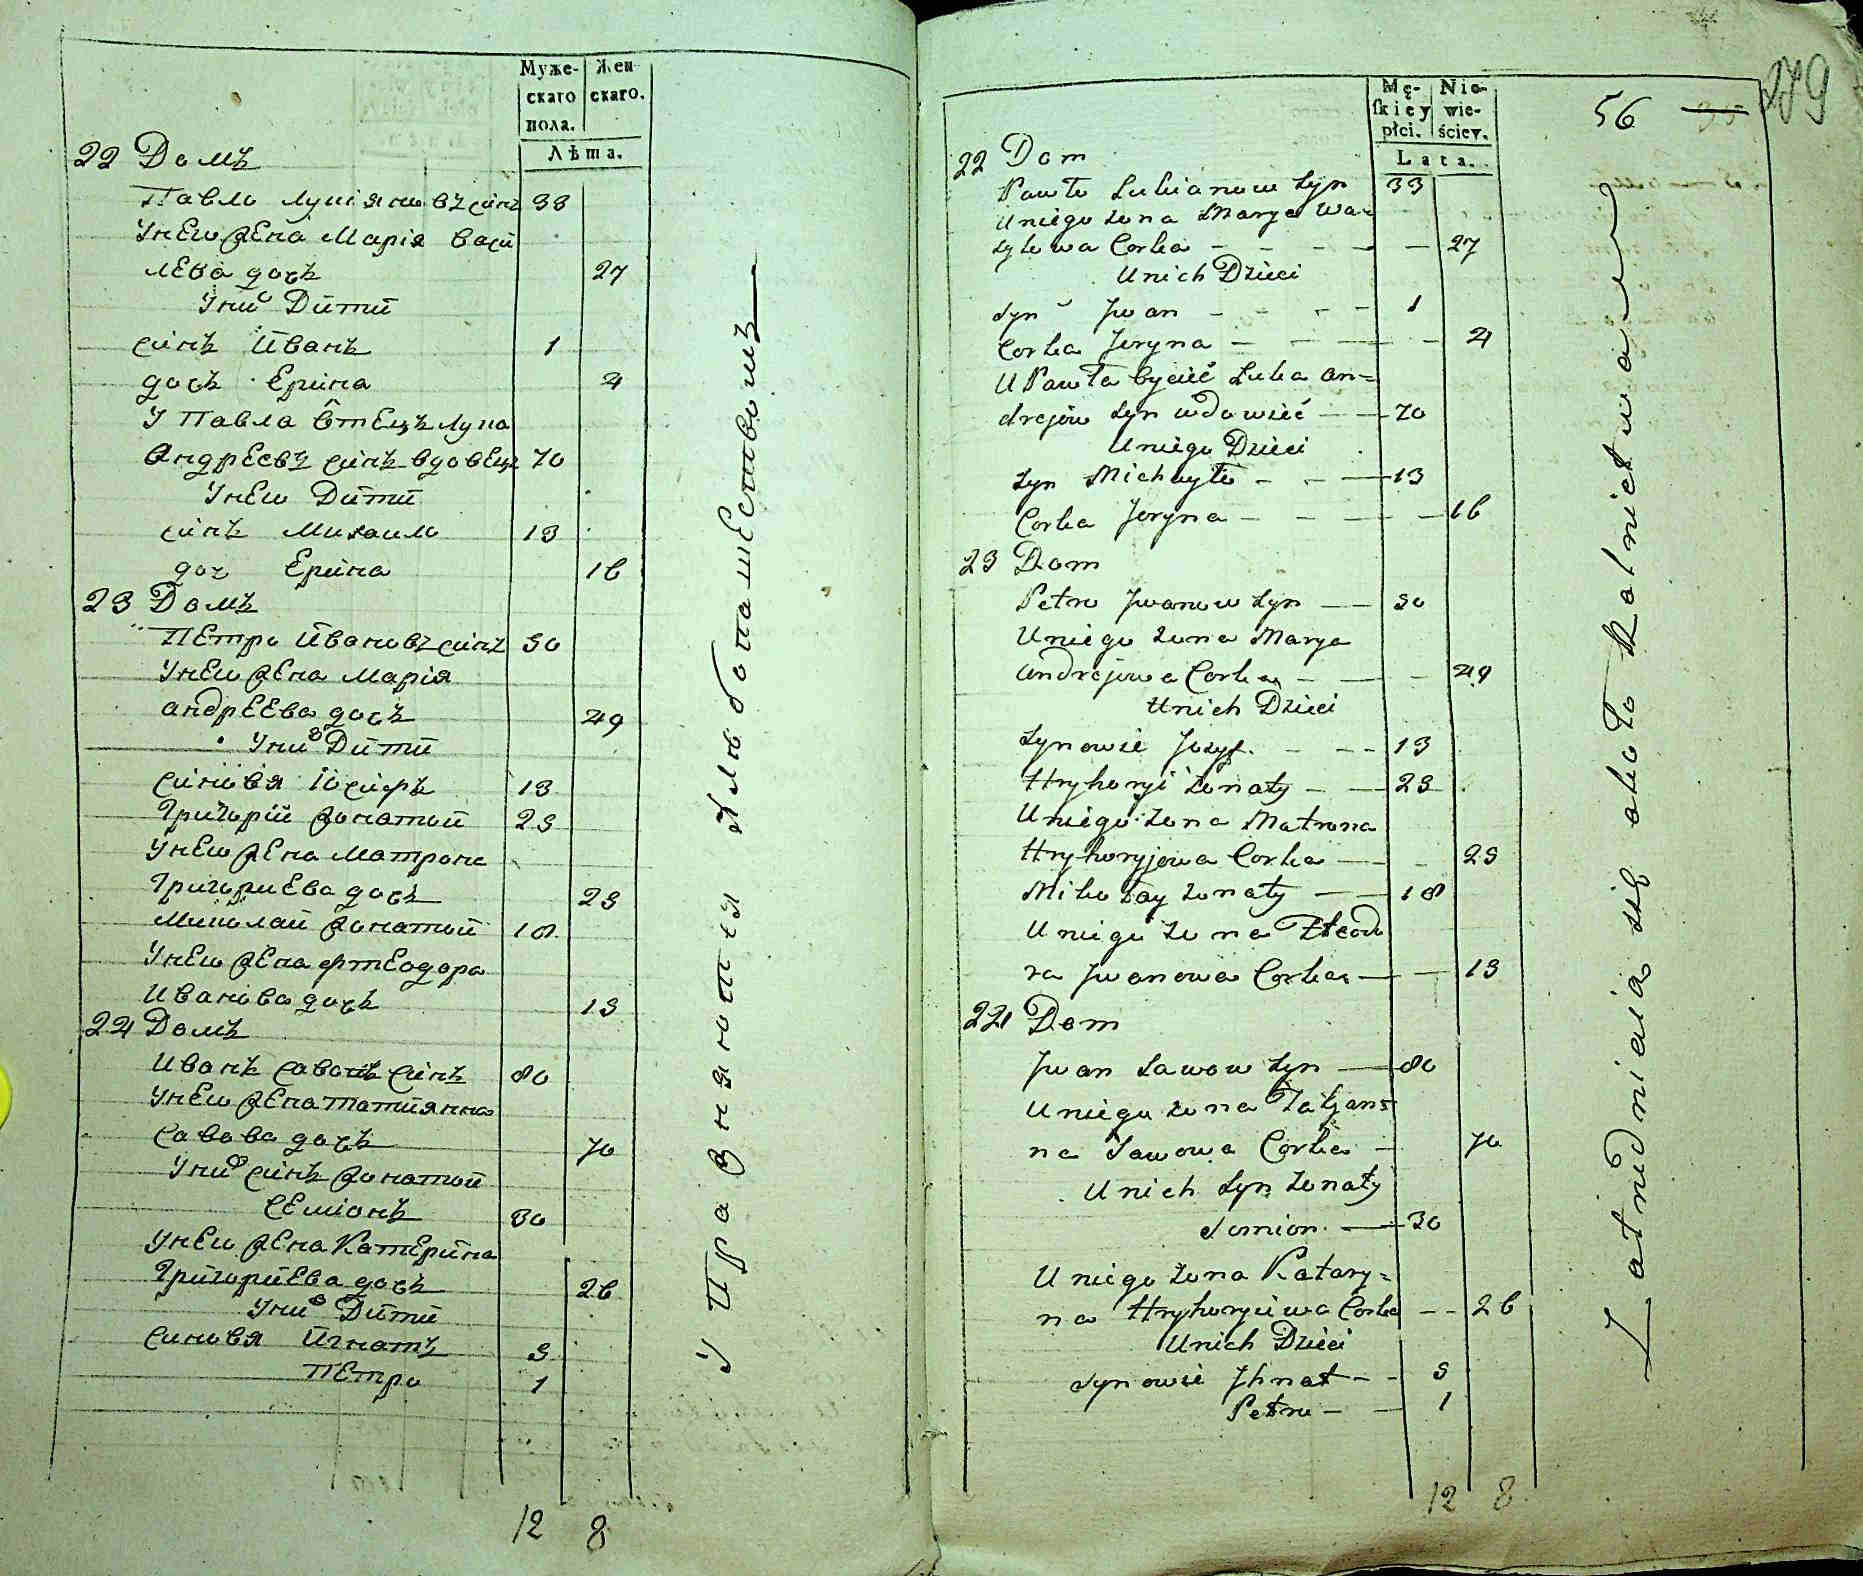 Муже-
скаго
пола.
Жен
скаго.
Лѣта.
22 Домъ
Павло Лукіяновъ синъ 33
Унего жена Марія Васи
лева дочъ 27
Уних Дити
синъ Иванъ 1
дочъ Ерина 4
У Павла Отецъ Лука
Андреевъ синъ вдовецъ 70
Унего Дити
синъ Михаило 13
доч Ерина 16
23 Домъ
Петро Ивановъ синъ 50
Унего жена Марія
Андреева дочъ 49
Уних Дити
Синовя Іосифъ 13
Григорій жонатий 23
Унего жена Матрона
Григориева дочъ 23
Миколай жонатий 18
Унего жена Фтеодора
Иванова дочъ 15
24 Домъ
Иванъ Савовъ Синъ 80
Унего жена Татиянна
Савова дочъ 70
Уних Синъ жонатий
Семіонъ 30
Унего жена Катерина
Григориева дочъ 26
Уних Дити
Синовя Игнатъ 3
Петро 1
12 8
У Празняютья хлѣбопашествомъ
56
279
Mę-
skiey
płci.
Nie-
wie-
ściey.
Lata.
22 Dom
Pawło Lukianow Syn 33
Uniego żona Marya Wa=
sylowa Corka 27
Unich Dzieci
Syn Jwan 1
Corka Jeryna 4
U Pawła Oyciec Luka An=
drejów Syn wdowiec 70
Uniego Dzieci
Syn Michayło 13
Corka Jeryna 16
23 Dom
Petro Jwanow Syn 50
Uniego żona Marya
Andrejowa Corka 49
Unich Dzieci
Synowie Jozyf 13
Hryhoryi żonaty 23
Uniego żona Matrona
Hryhoryjowa Corka 23
Mikołay żonaty 18
Uniego żona Fteodo
ra Jwanowa Corka 15
24 Dom
Jwan Sawow Syn 80
Uniego żona Tatjan=
na Sawowa Corka 70
Unich Syn żonaty
Semion 30
Uniego żona Katary=
na Hryhoryiowa Corka 26
Unich Dzieci
Synowie Jhnat 3
Petro 1
12 8
Zatrudniaia się około Rolnictwa